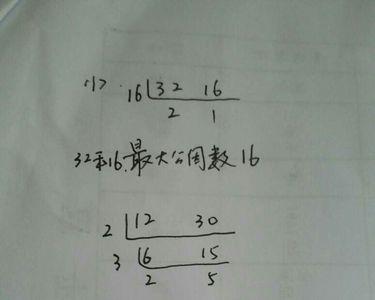 (1) 16 32 16
2 1
32和16最大公因数16
2 12 30
3 6 15
2 5